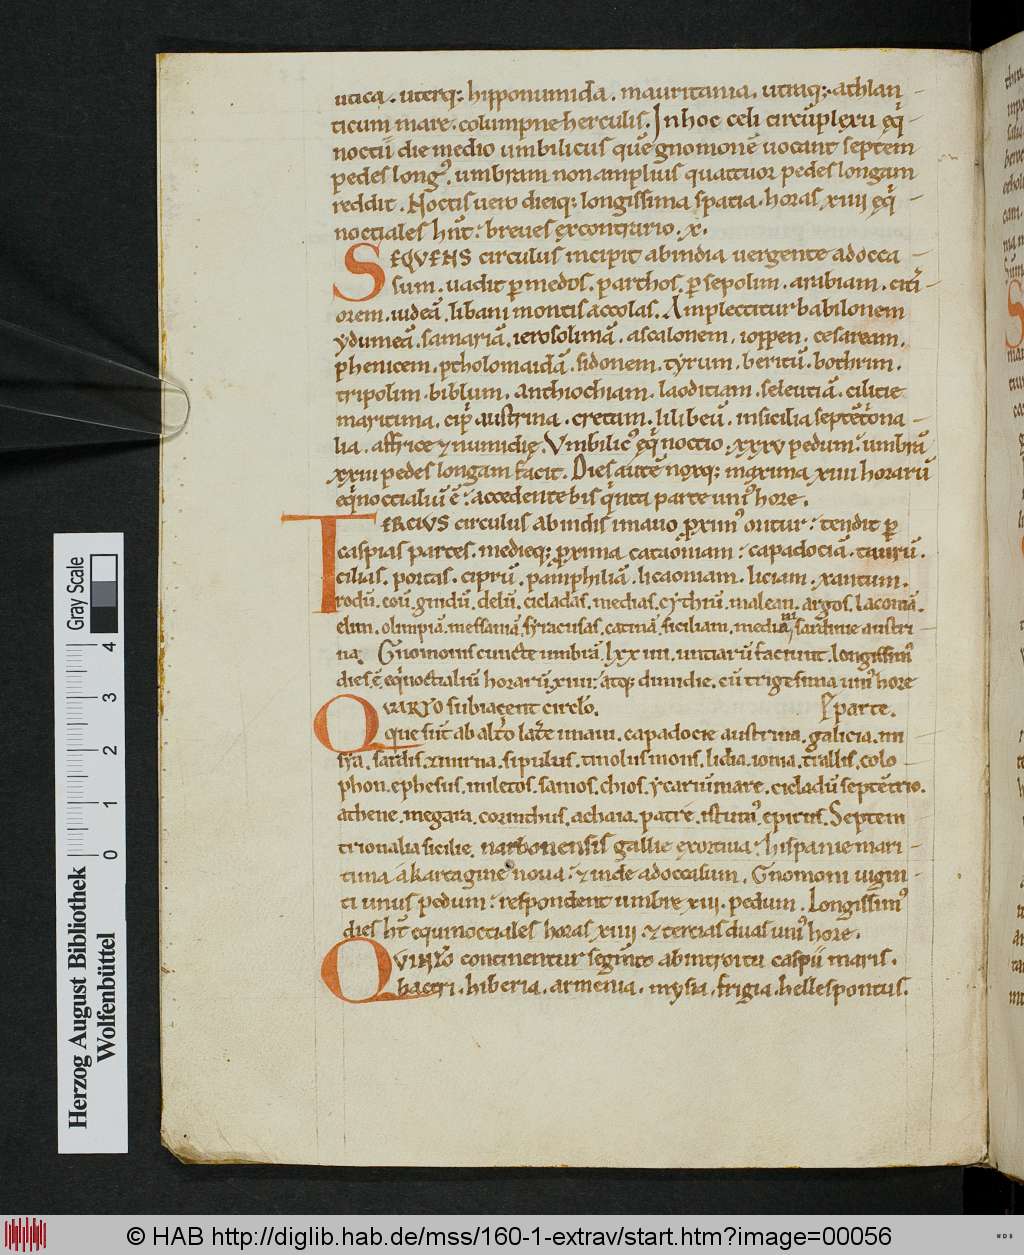 utica . uterq; hipponumida . mauritania . utraq; athlan-
ticum mare . columpne herculis . In hoc celi circuplexu eq-
noctii die medio umbilicus que gnomonē uocant septem
pedes long' . umbram non amplius quattuor pedes longam
reddit . Noctis uero dieiq; longissima spatia . horas xiiii eq-
noctiales hn̄t : breues excontrario . x .
SEQVENS circulus incipit ab india uergente ad occa-
sum . uadit p medos . parthos . p sepolim . arabiam . citi-
orem . iudeā . libani montis accolas . Amplectitur babilonem
ydumeā . samariā . ierosolimā . ascalonem , ioppen . cesaream .
phenicem . ptholomaidā . sidonem . tyrum . beritū . bothrim .
tripolim . biblum . anthiochiam . laoditiam . seleutiā . cilicie
maritima . cip' austrina . cretam . lilibeū . in sicilia septētiona-
lia . affrice & numidię . Vmbilic' eq noctio . xxxv pedum : umbrā
xxiiii pedes longam facit . Dies autē noxq; maxima xiiii horarū
eqnoctialui ē : accedente bis qnta parte uni' hore .
TERCIVS circulus ab indis imauo pxim' oritur : tendit p
caspias partes . medieq; pxima cataoniam : capadociā . taurū .
cilias . portas . ciprū . pamphiliā . licaoniam . liciam . xantum .
rodū . coū . gnidū . delū . cicladas . medias . cythrū . malean . argos . laconiā .
elim . olimpiā . messaniā . syracusas . catinā . siciliam . mediā . sardinie austri-
na . Gnomonis cuncte umbrā lxxiiii . untiarū faciunt . longissim'
dies ē eqnoctialiū horarū xiiii : atq; dimidie . cū trigesima uni' hore
QVARTO subiacent circlo . parte .
que sūt ab alto late imaui . capadocie austrina . galicia . mi
sya . sardis . xmirna . sipulus . tmolus mons . lidia . ionia . trallis . colo-
phon . ephesus . miletos . samos . chios . ycariū mare . cicladū septētrio .
athene . megara . corinthus . achaia . patre . istum' . epirus . Septem
trionalia sicilie . narbonensis gallie exortiua : hispanie mari-
tima a kartagine noua : & inde ad occasum . Gnomoni uigin-
ti unus pedum : respondent umbre xiii . pedum . Longissim'
dies ht equinoctiales horas xiiii & tercias duas uni' hore .
QVINTO continentur segmto ab introitu caspii maris .
bactri . hiberia . armenia . mysia . frigia . hellespontus .
Herzog August Bibliothek
Wolfenbüttel
Gray Scale
0 1 2 3 4
© HAB http://diglib.hab.de/mss/160-1-extrav/start.htm?image=00056